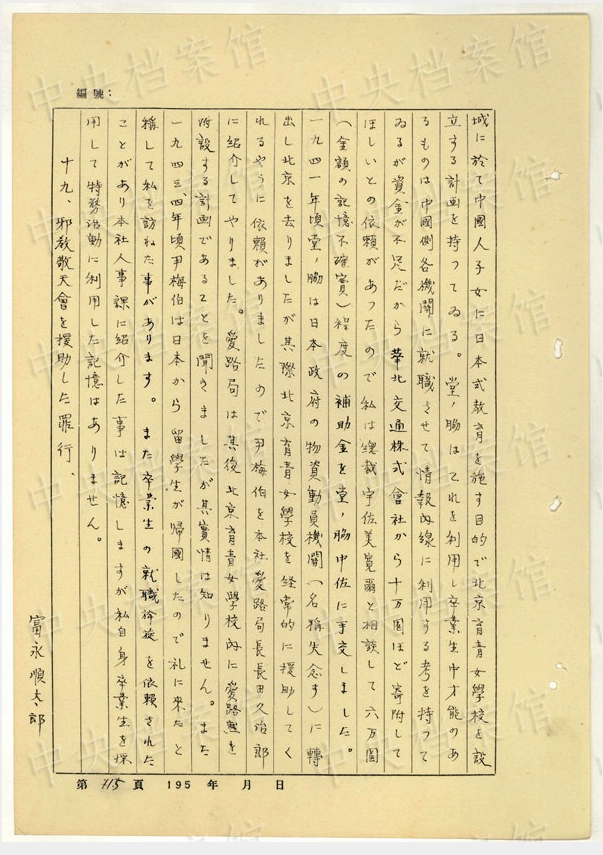 編號:
域に於て中國人子女に日本式教育を施す目的で北京育青女學校を設
立する計画を持つてゐる。堂ノ脇はこれを利用し卒業生中才能のあ
るものは中國側各機関に就職させて情報内線に利用する考を持つて
ゐるが資金が不足だから華北交通株式會社から十万圓ほど寄附して
ほしいとの依頼があつたので私は総裁宇佐美寛爾と相談して六万圓
(金額の記憶不確實)程度の補助金を堂ノ脇中佐に手交しました。
一九四一年頃堂ノ脇は日本政府の物資動員機関(名稱失念す)に轉
出し北京を去りましたが其際北京育青女學校を経常的に援助してく
れるやうに依頼がありましたので尹梅伯を本社愛路局長長田久治郎
に紹介してやりました。愛路局は其後北京育青女學校内に愛路塾を
附設する計画であることを聞きましたが其實情は知りません。また
一九四三、四年頃尹梅伯は日本から留學生が帰國したので礼に来たと
稱して私を訪ねた事があります。また卒業生の就職斡旋を依頼された
ことがあり本社人事課に紹介した事は記憶しますが私自身卒業生を採
用して特務活動に利用した記憶はありません。
十九、邪教敬天會を援助した罪行、
富永順太郎
第 715 頁 195 年 月 日
中央档案馆